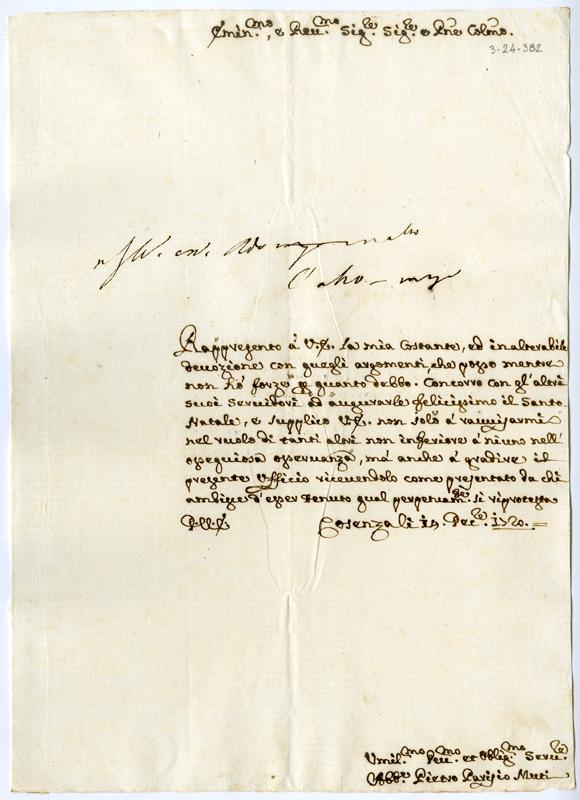 Emin.mo, e Reu.mo Sig.re Sig.re e Pne Colmo.
3-24-382
Rappresento à V.E. la mia Costante, ed inalterabile
deuozione con quegli argomenti, che posso mentre
non hò forze p quanto debbo. Concorro con gl'altri
suoi Seruitori ad augurarle felicissimo il Santo
Natale, e supplico V.E. non solo à rauuisarmi
nel ruolo di tanti altri non inferiore à niuno nell'
ossequiosa osseruanza, mà anche à gradire il
presente Ufficio riceuendolo come presentato da chi
ambisce d'esser tenuto qual perpetuam.te si riprotesta
D.V.E. Cosenza li 19. Dec.re 1720.=
Umil.mo Deu.mo et Oblig.mo Seru.re
Abb.e Pietro Parisio Muti